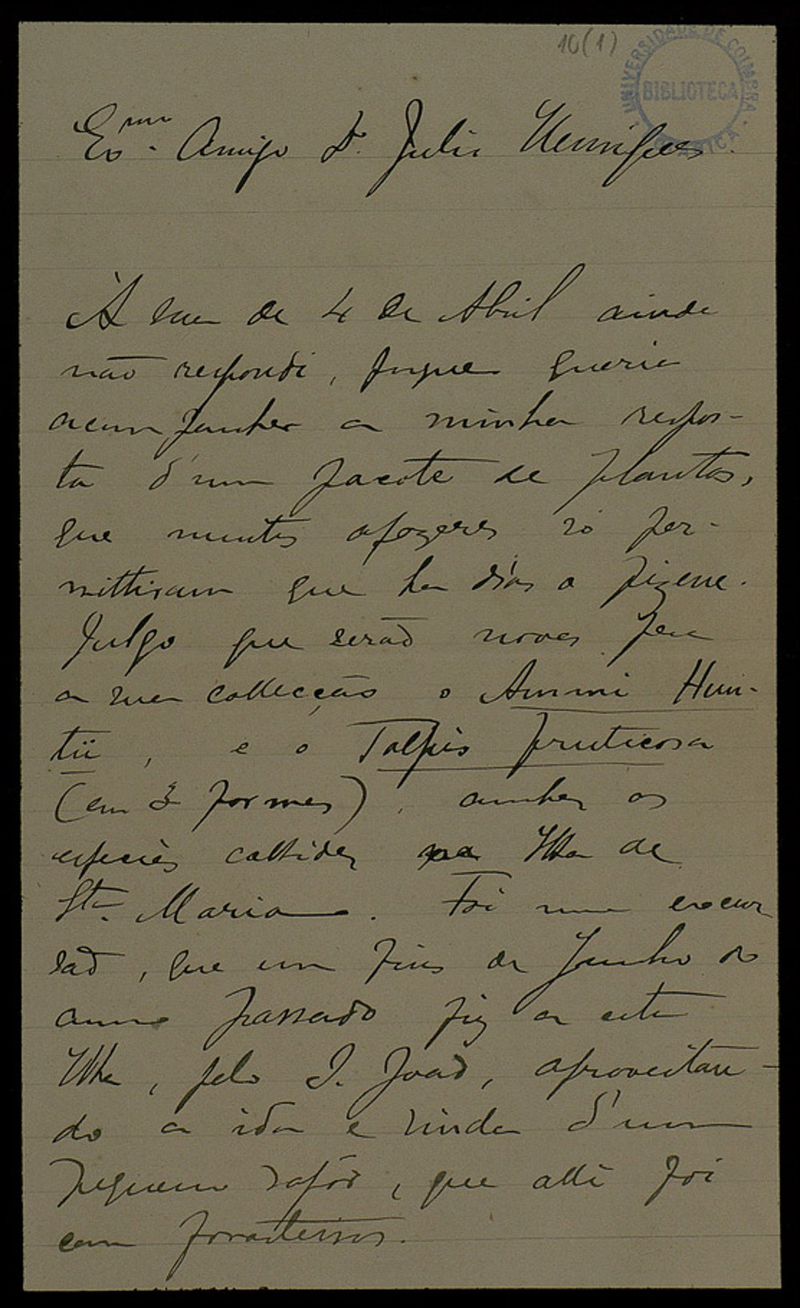 10(1)
UNIVERSIDADE DE COIMBRA
BIBLIOTECA
BOTANICA
Exmo. Amigo Dr. Julio Henriques.
Á sua de 4 de Abril ainda
não respondi, porque queria
acompanhar a minha respos-
ta d'um pacote de plantas,
que muitos afazeres só per-
mittiram que ha dias o fizesse.
Julgo que serão novas para
a sua collecção o Ammi Hun-
tii, e o Tolpis fruticosa
(em 3 formas), ambas as
especies colhidas na Ilha de
Sta. Maria. Foi uma excur-
são, que em fins de Junho do
anno passado fiz a esta
Ilha, pelo S. João, aproveitan-
do a ida e vinda d'um
pequeno vapôr, que alli foi
com forasteiros.